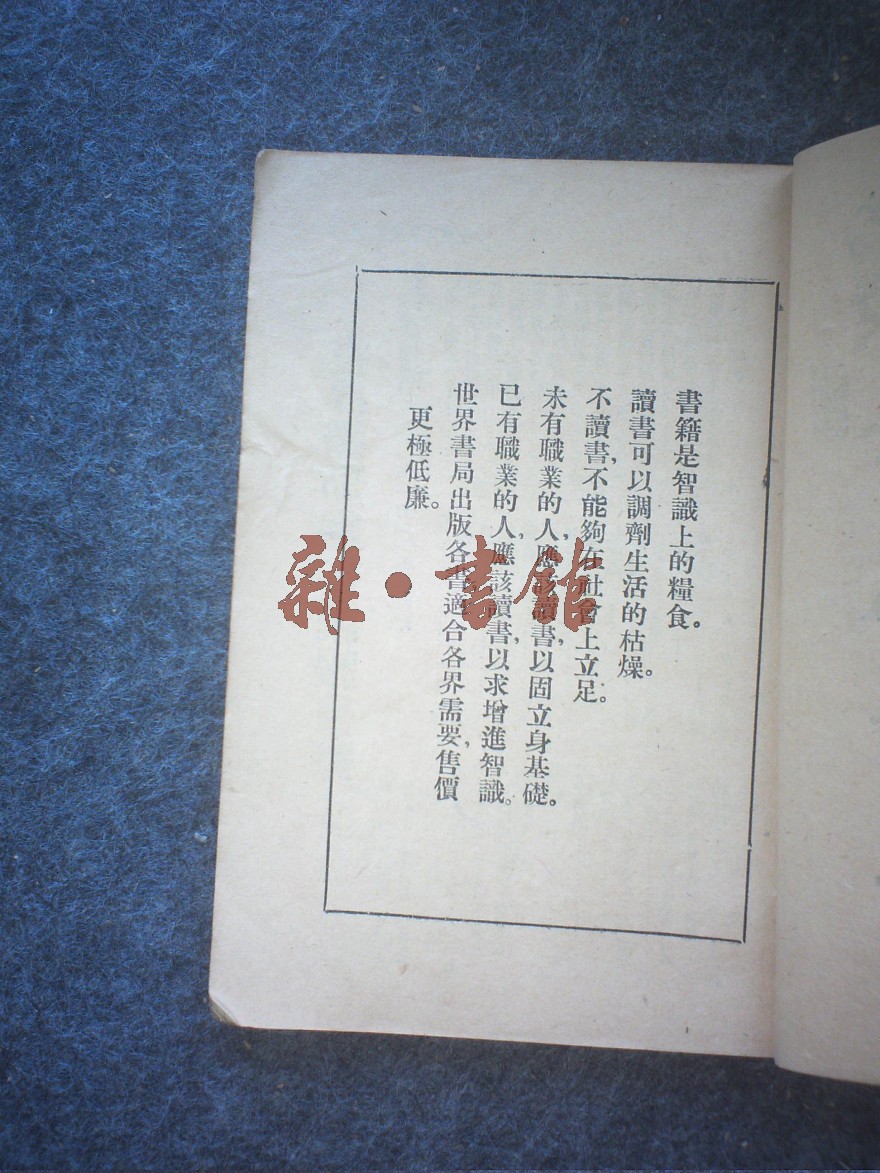 書籍是智識上的糧食。
讀書可以調劑生活的枯燥。
不讀書，不能夠在社會上立足。
未有職業的人，應該讀書，以固立身基礎。
已有職業的人，應該讀書，以求增進智識。
世界書局出版各書適合各界需要，售價
更極低廉。
雜·書館